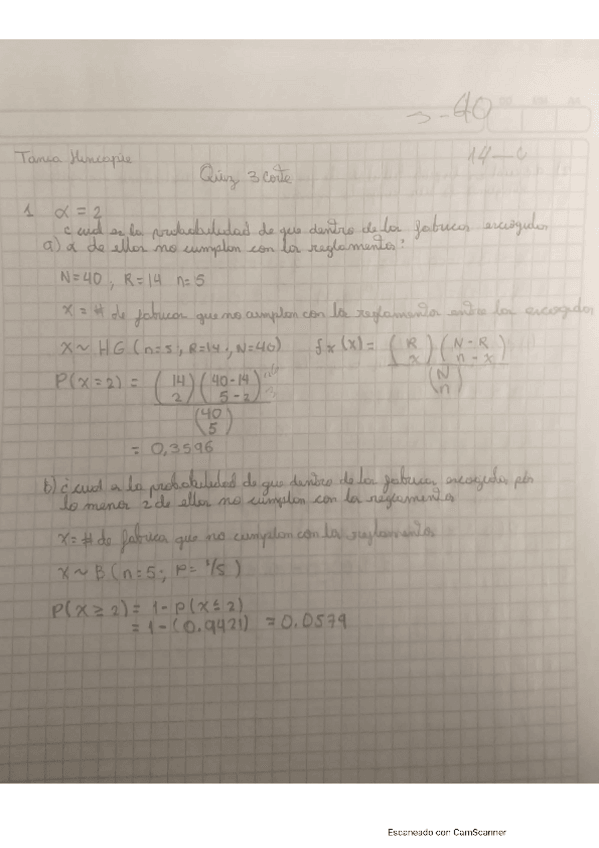 → -40
14-6
Tania Hincapie
Quiz 3 corte
1 α = 2
¿cual es la probabilidad de que dentro de las fabricas escogidas
a) 2 de ellas no cumplan con los reglamentos?
N=40, R=14 n=5
x = # de fabricas que no cumplan con los reglamentos entre las escogidas
X~ HG (n=5; R=14; N=40) fx(x) = (R x) (N-R n-x)
(N n)
P(x=2) = (14 2) (40-14 5-2)
(40 5)
= 0,3596
b) ¿cual es la probabilidad de que dentro de las fabricas escogidas por
lo menos 2 de ellas no cumplan con los reglamentos
x= # de fabrica que no cumplan con los reglamentos
X~B(n=5; P= 1/5)
P(x≥2) = 1- P(x≤2)
= 1-(0.9421) = 0.0579
Escaneado con CamScanner